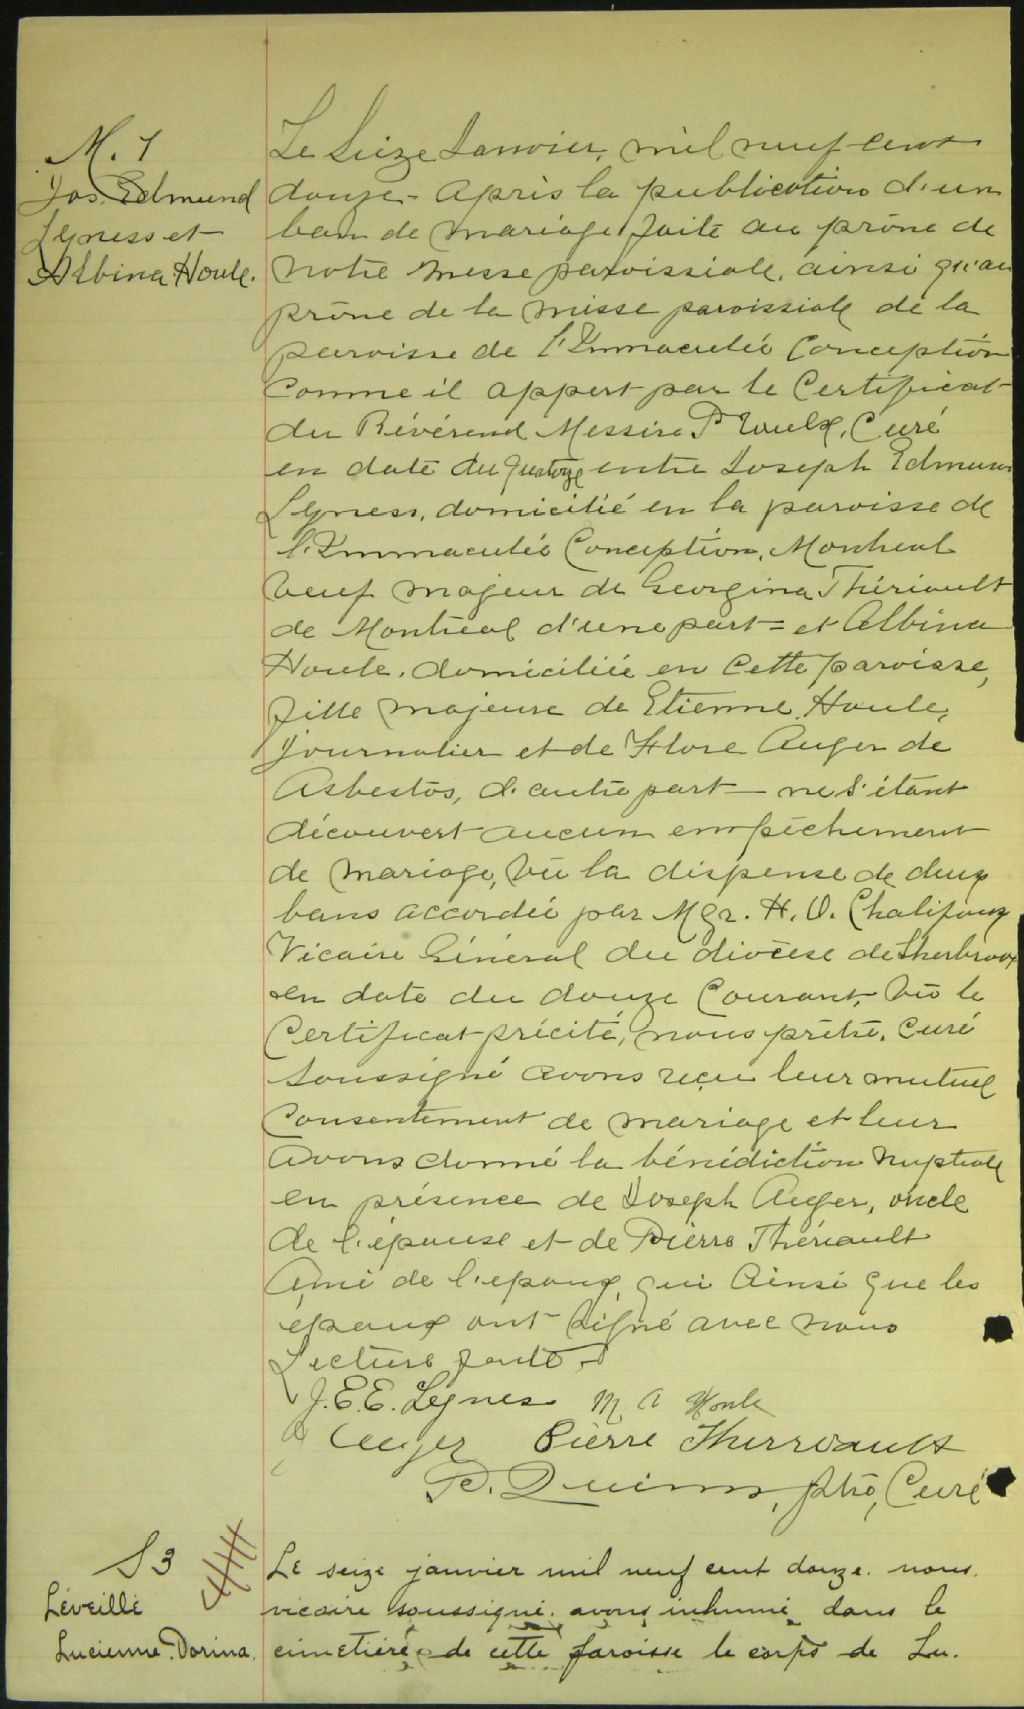 M. 1
Jos. Edmund
Lyness et
Albina Houle.
Le Seize Janvier, mil neuf cent
douze - après la publication d'un
ban de mariage faite au prône de
notre messe paroissiale, ainsi qu'au
prône de la messe paroissiale de la
paroisse de l'Immaculée Conception
comme il appert par le Certificat
du Révérend Messire Proulx, Curé
en date du quatorze entre Joseph Edmund
Lyness, domicilié en la paroisse de
l'Immaculée Conception, Montreal
veuf majeur de Georgina Thériault
de Montréal d'une part = et Albina
Houle, domiciliée en cette paroisse,
fille majeure de Etienne Houle,
journalier et de Flore Auger de
Asbestos, d'autre part - ne s'étant
découvert aucun empêchement
de mariage, vu la dispense de deux
bans accordée par Mgr. H. O. Chalifoux
Vicaire Général du diocèse de Sherbrooke
en date du douze Courant, vu le
Certificat précité, nous prêtre, curé
soussigné avons reçu leur mutuel
Consentement de mariage et leur
avons donné la bénédiction nuptiale
en présence de Joseph Auger, oncle
de l'épouse et de Pierre Thériault
Ami de l'epoux, qui Ainsi que les
epoux ont signé avec nous
Lecture faite.
J. E. E. Lyness M. A Houle
Auger Pierre Therriault
P. Quinn, ptre, Curé
S 3
Léveillé
Lucienne. Dorina.
Le seize janvier mil neuf cent douze. nous.
vicaire soussigné. avons inhumé dans le
cimetière de cette paroisse le corps de Lu.